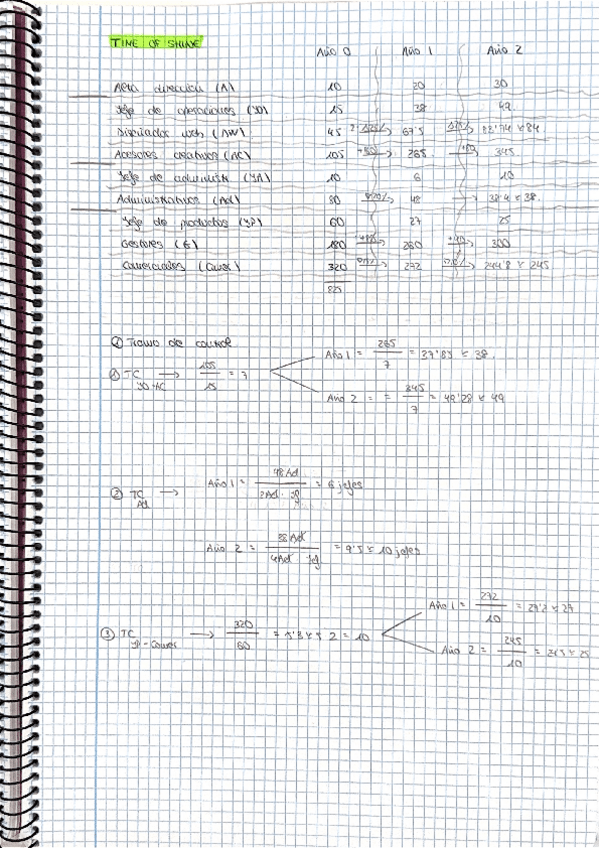 TIME OF SHINE
Año 0 Año 1 Año 2
Alta dirección (A) 10 20 30
Jefe de operaciones (JO) 15 38 49
Diseñador web (DW) 45 67'5
Asesores creativos (AC) 105 +80 265 +80 345
Jefe de administ (JA) 10 6 10
Administrativos (Ad) 80 48 38'4 ≈ 38.
Jefe de productos (JP) 60 27 25
Gestores (G) 180 260 300
Comerciales (Comer) 320 272 244'8 ≈ 245
825
Tramo de control
① TC JO-AC → 105/15 = 7
Año 1 = 265/7 = 37'85 ≈ 38.
Año 2 = = 345/7 = 49'28 ≈ 49
② TC Ad →
Año 1 = 48Ad = 6 jefes
Año 2 = 38Ad = 9'5 ≈ 10 jefes
③ TC → 320/60 = 5'3 ≈ 5 · 2 = 10
Año 1 = 272/10 = 27'2 ≈ 27
Año 2 = 245/10 = 24'5 ≈ 25